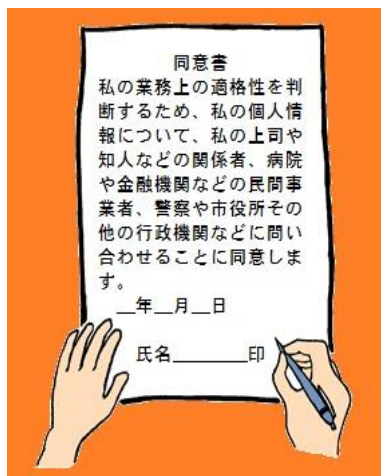 同意書
私の業務上の適格性を判
断するため、私の個人情
報について、私の上司や
知人などの関係者、病院
や金融機関などの民間事
業者、警察や市役所その
他の行政機関などに問い
合わせることに同意しま
す。
__年__月__日
氏名________印